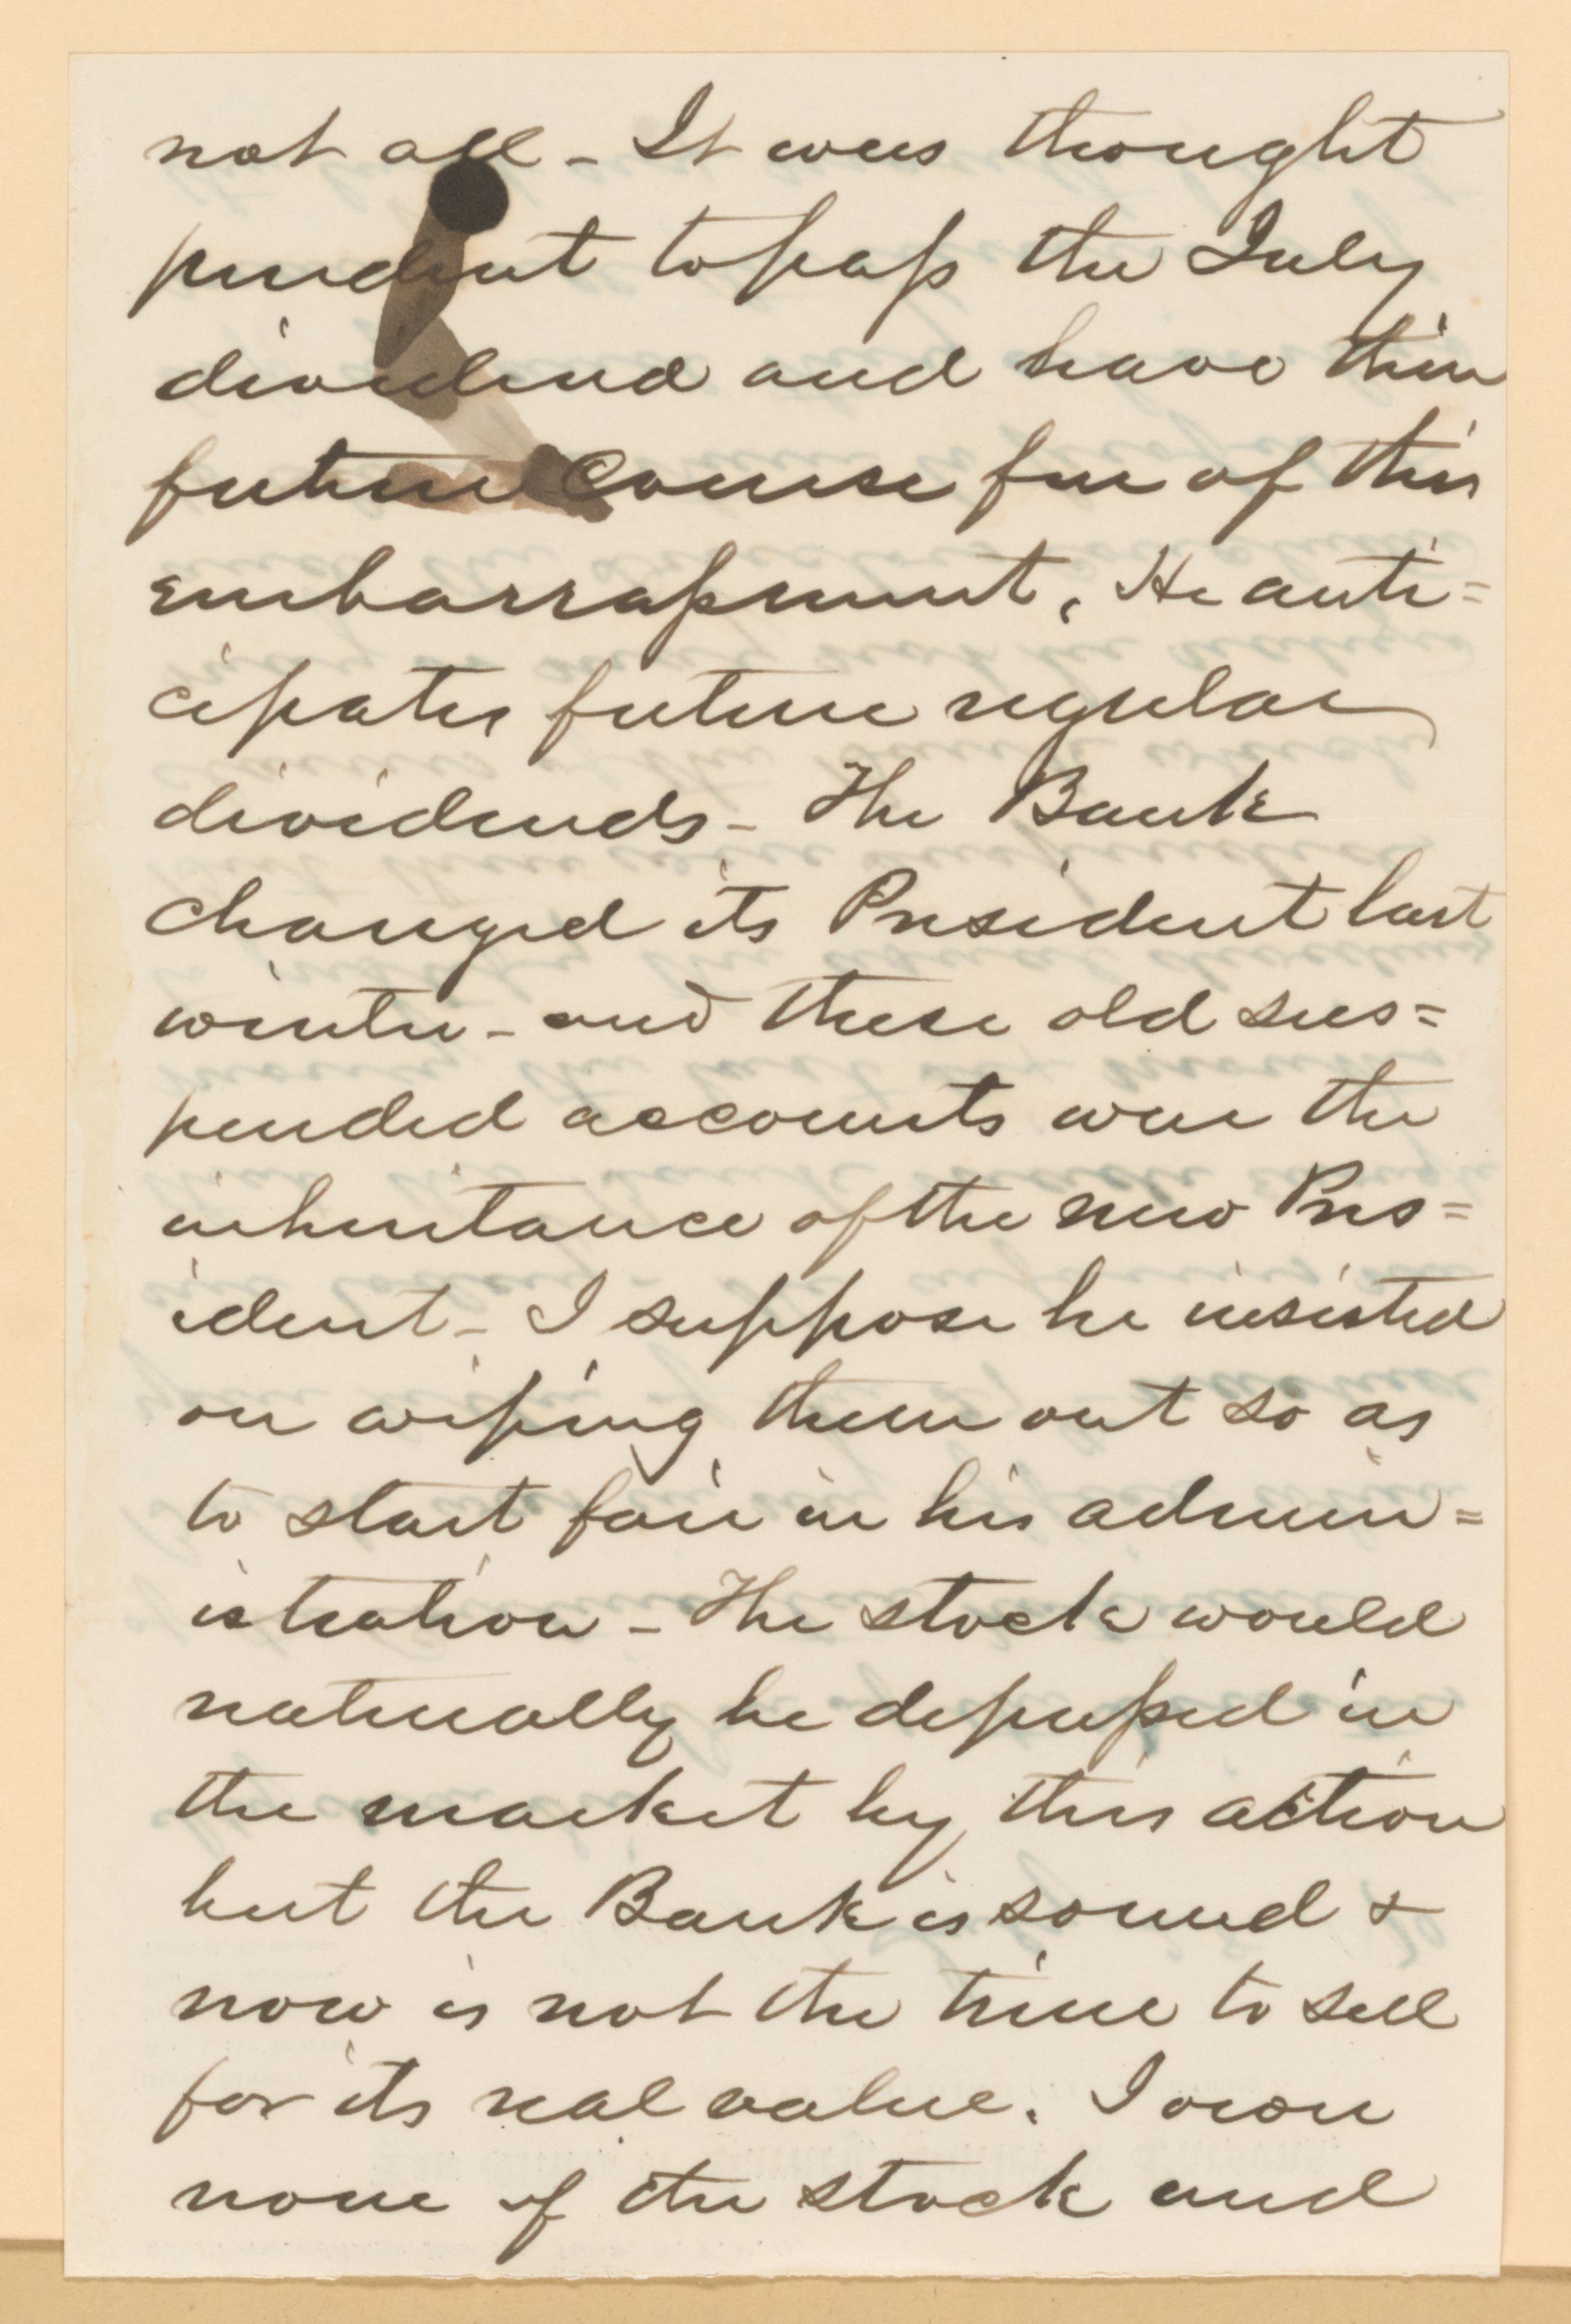 not all - It was thought
prudent to pass the July
dividend and have their
future course free of this
embarrassment. He anti=
cipates future regular
dividends - The Bank
changed its President last
winter - and these old sus=
pended accounts were the
inheritance of the new Pres=
ident - I suppose he insisted
on wiping them out so as
to start fair in his admin=
istration - The stock would
naturally be depressed in
the market by this action
but the Bank is sound &
now is not the time to sell
for its real value. I own
none of the stock and